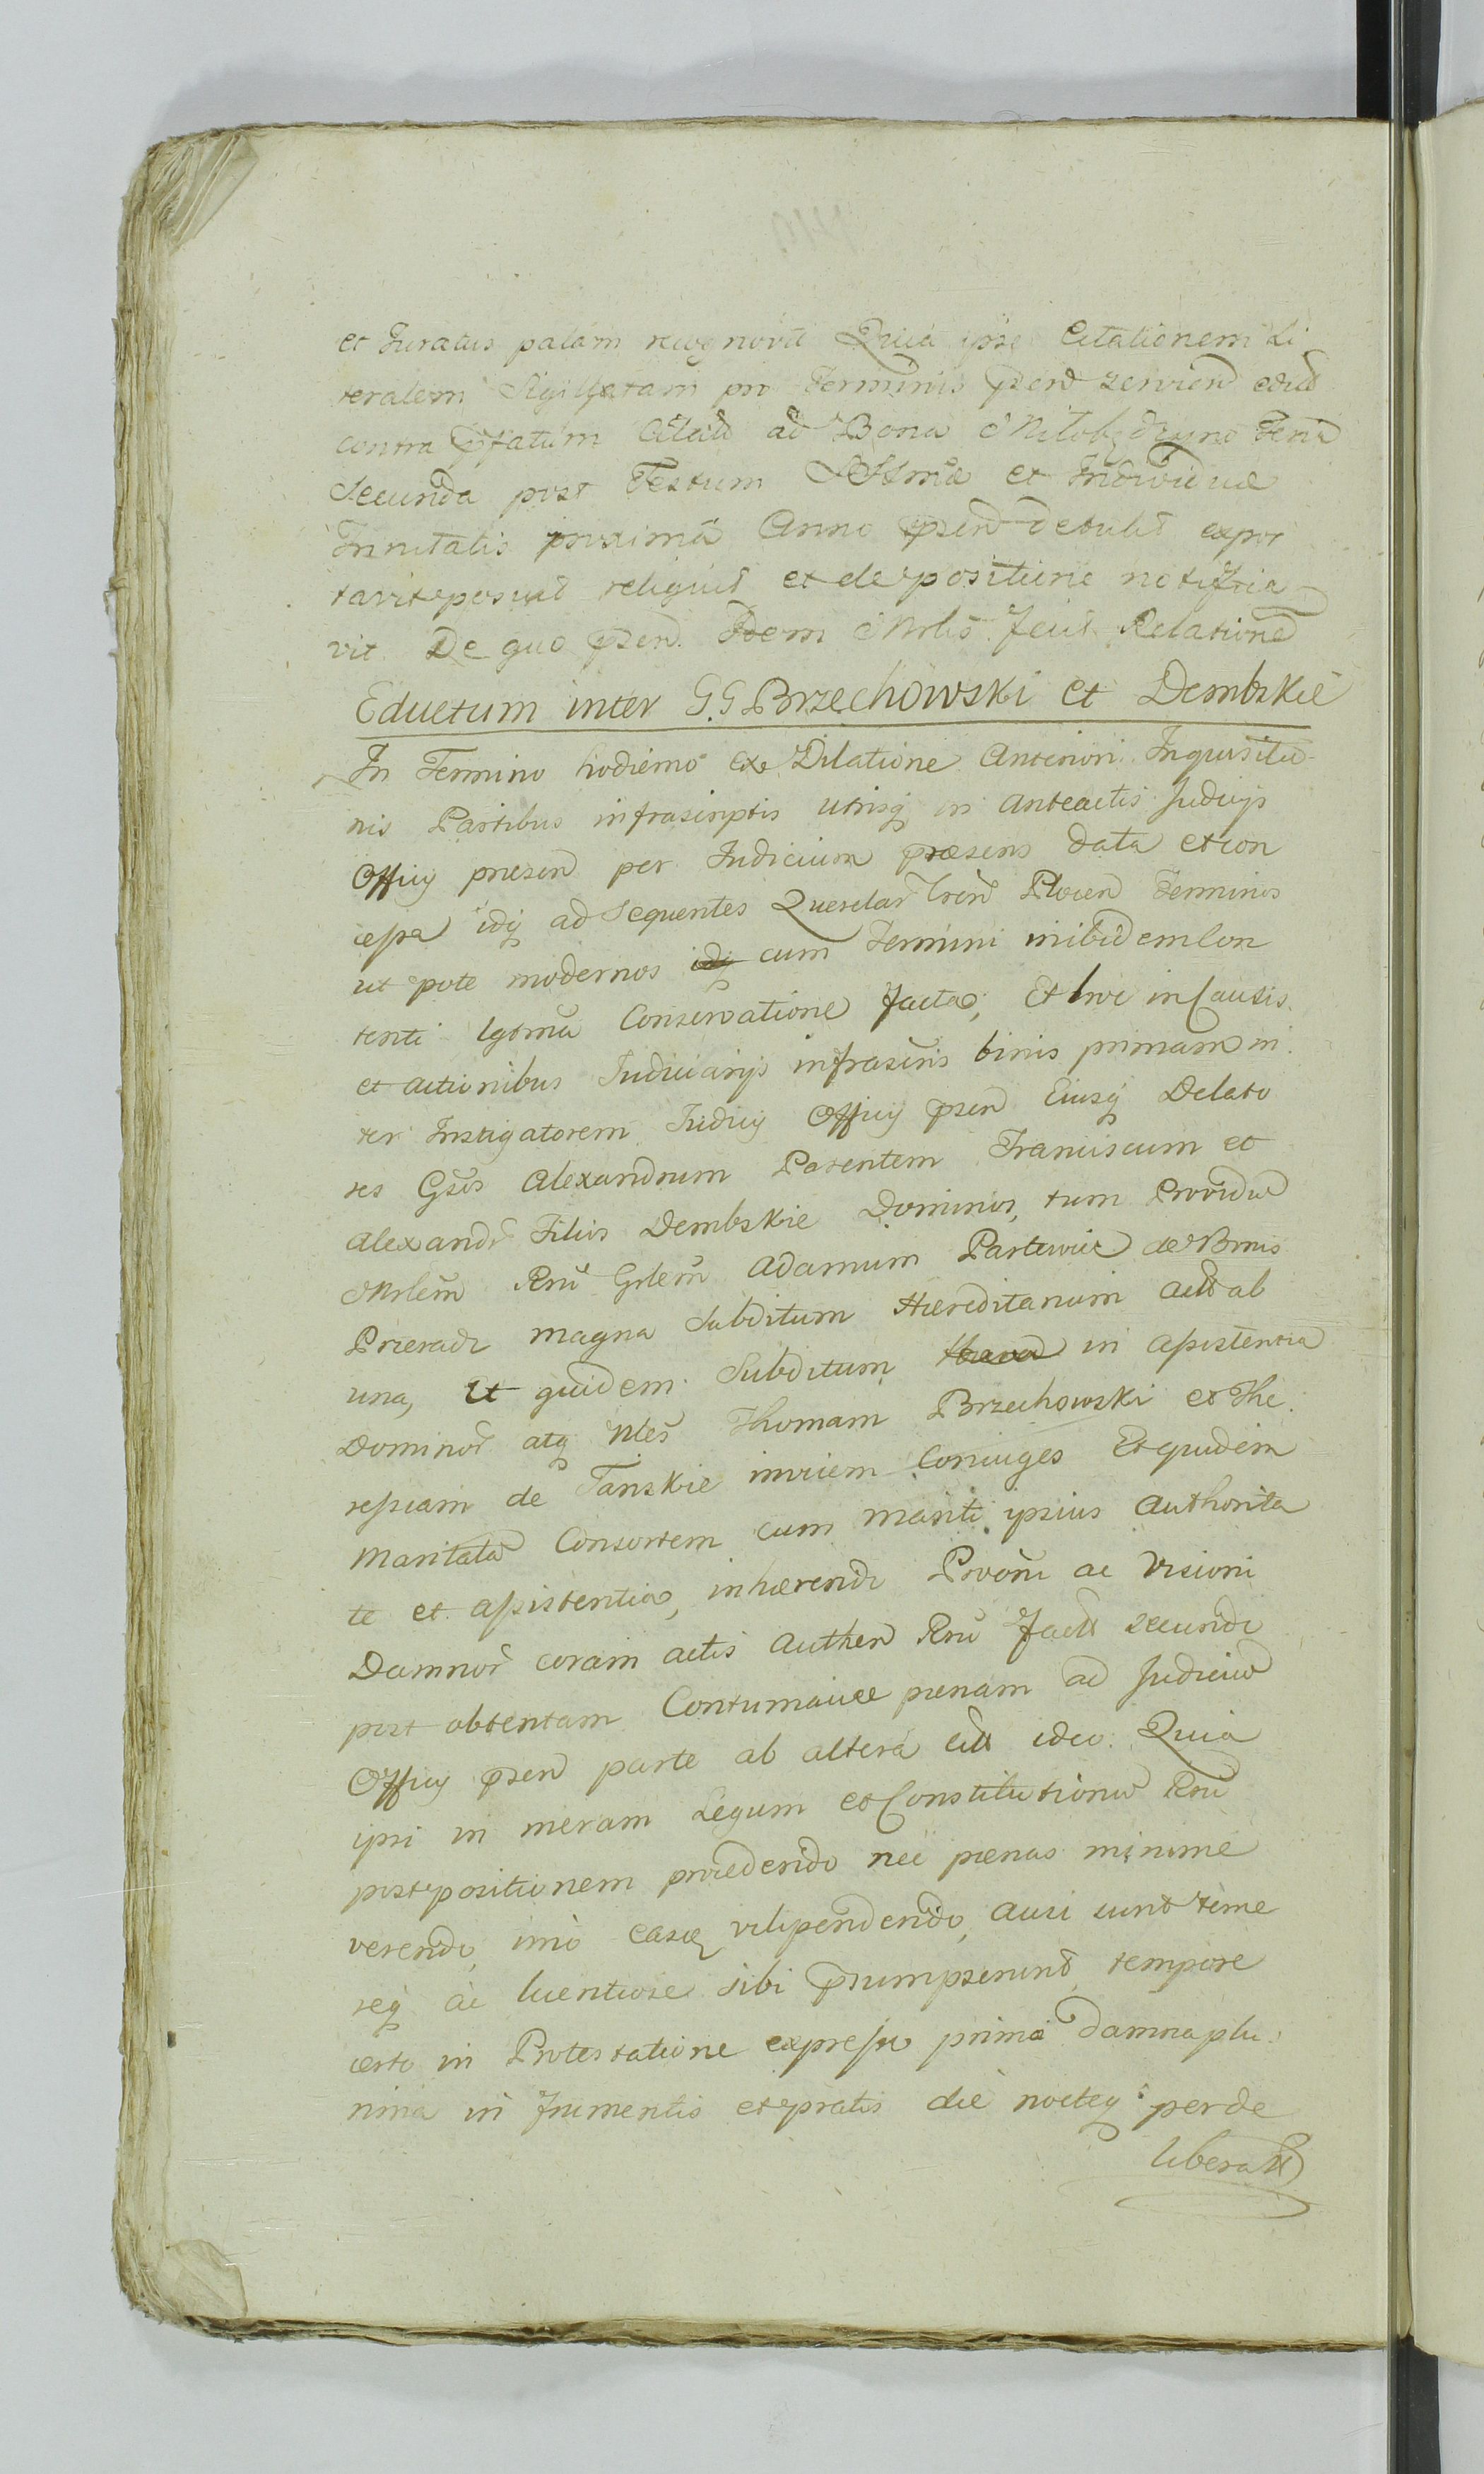 et Juratus palam recognovit Quia ipse Citationem Li
teralem Sigillatam pro Terminis psen servien
contra Citatum ad Bona Feria
Secunda post Festum SSsmae et Individuae
Trinitatis proxima Anno psen detulit expor
tavit reposuit reliquit et de positione notifica
vit. De quo psen. Idem Mrlis fecit Relatione
Eductum inter G.G Brzechowski et Dembskie
In Termino hodierno ex Dilatione Anteriori Inquisitio
nis Partibus infrascriptis utrisq in anteactis Judicijs
Officij presen per Judicium praesens data et con
cessa idq ad Sequentes Querelar Tren Plocen Terminos
ut pote modernos cum Termini inibidem Con
tenti lgtma Conservatione facta; Et hoc in Causis
et actionibus Judiciarijs infrascris binis primam in
ter Instigatorem Judicij Officij psen Eiusq Delato
res Gsos Alexandrum Parentem Franciscum et
Alexandr Filios Dembskie Dominos, tum Providu
Adamum de Bonis
magna Subditum Haereditarium ab
una, Et quidem Subditum in assistentia
Dominor atq Thomam Brzechowski et The
ressiam de Tanskie invicem Coniuges Et quidem
Maritata Consortem cum mariti ipsius Authorita
te et assistentia, inhaerendo Provoni ac Visioni
Damnor coram actis Authen Rni secundo
post obtentam Contumaciae penam ad Judiciu
Officij psen parte ab altera ideo. Quia
ipsi in meram Legum et Constitutionu Rni
postpositionem procedendo nec paenas minime
verendo, imo easq vilipendendo, ausi sunt teme
req ac licentiose sibi psumpserunt, tempore
certo in Protestatione expresso prima damna plu
rima in frumentis et pratis die nocteq perde